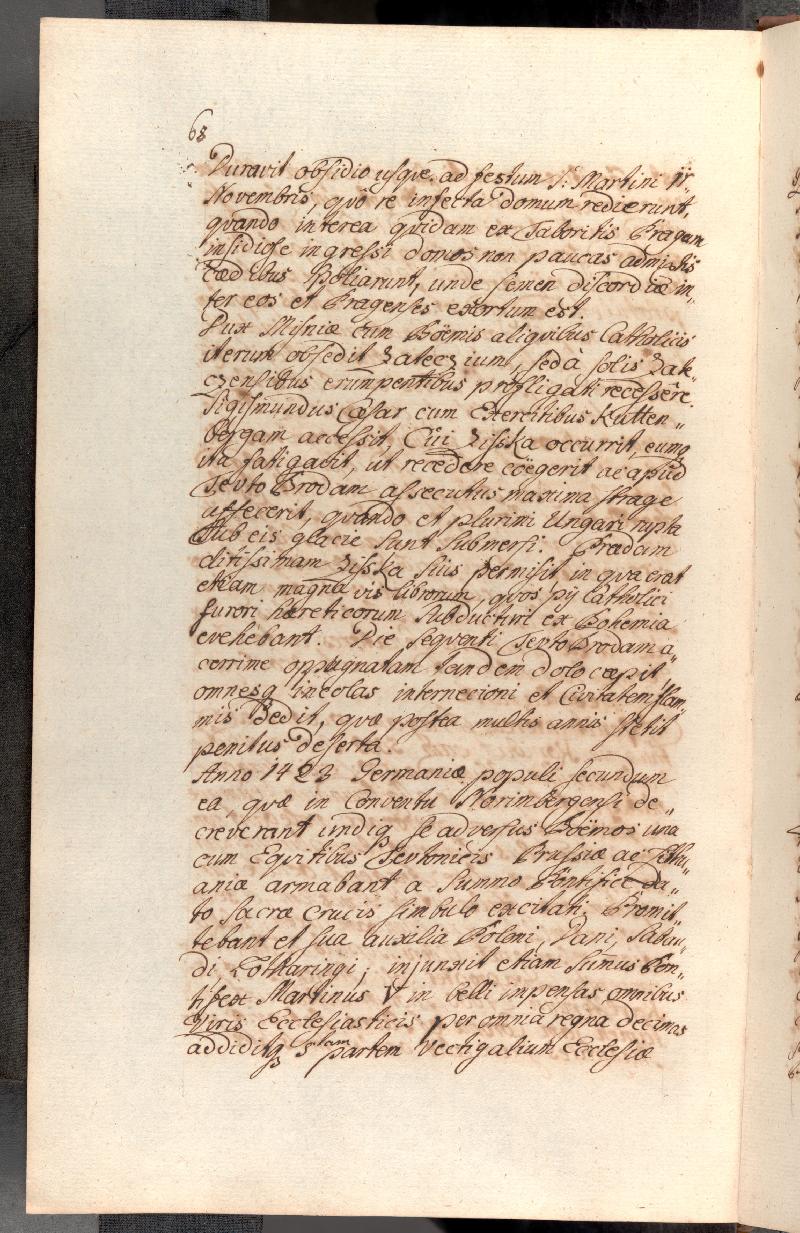 68
Duravit obsidio usque ad festum S. Martini 11
Novembris, quô re infecta domum redierunt,
quando interea quidam ex Taboritis Pragam
insidiose ingressi domos non paucas admixtis
cædibus spoliarunt, unde semen discordiæ in„
ter eos et Pragenses exortum est.
Dux Misniæ cum Boëmis aliqvibus Catholicis
iterum obsedit Zateczium, sed à solis Zate„
czensibus erumpentibus profligati recessêre.
Sigismundus Cæsar cum Exercitibus Kutten„
bergam accessit, Cui Zisska occurrit, eumq
ita fatigavit, ut recedere cöegerit ac apud
Tevto Brodam assecutus maxima strage
affecerit, qvando et plurimi Ungari rupta
sub eis glacie sunt submersi. Prædam
ditissimam Zisska suis permisit in qva erat
etiam magna vis librorum, qvos pij Catholici
furori hæreticorum subducturi ex Bohemia
evehebant. Die seqventi TevtoBrodam a„
cerrime oppugnatam tandem dolo cæpit
omnesq incolas internecioni et Civitatem flam„
mis dedit, qvæ postea multis annis stetit
penitus deserta.
Anno 1423 Germaniæ populi secundum
ea, qvæ in Conventu Norimbergensi de„
creverant undiq se adversus Boëmos una
cum Eqvitibus Tevtonicis Prussiæ ac Lithu„
aniæ armabant a Summo Pontifice da„
to sacræ crucis simbulo excitati; Promit„
tebant et sua auxilia Poloni, Dani, Sabau„
di Lotharingi; injunxit etiam Sumus Pon„
tifex Martinus V in belli impensas omnibus
Viris Ecclesiasticis per omnia regna decimas
addiditq 5tam partem Vectigalium Ecclesiæ